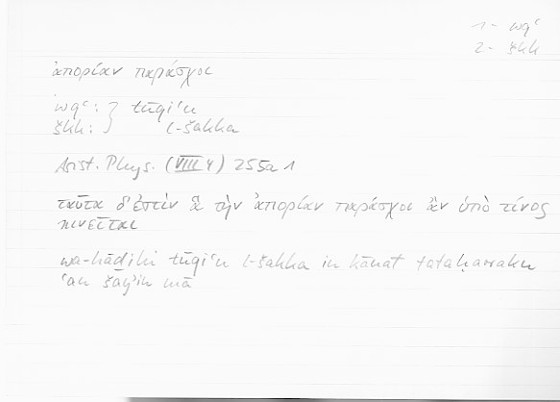 1- wqʿ
2- škk
ἀπορίαν παράσχοι
wqʿ: } tūqiʿu
škk: } l-šakka
Arist. Phys. (VIII 4) 255a 1
ταῦτα δ’ ἐστὶν ἃ τὴν ἀπορίαν παράσχοι ἂν ὑπὸ τίνος
κινεῖται
wa-hāḏihi tūqiʿu l-šakka in kānat tataḥarraku
ʿan šayʾin mā